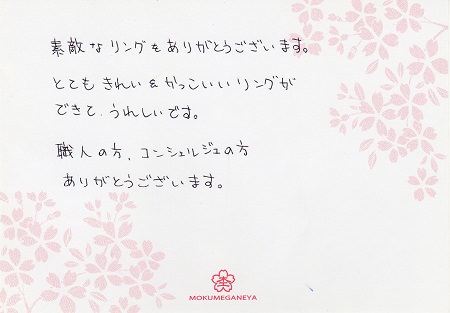 素敵なリングをありがとうございます。
とてもきれい&かっこいいリングが
できて、うれしいです。
職人の方、コンシェルジュの方
ありがとうございます。
MOKUMEGANEYA